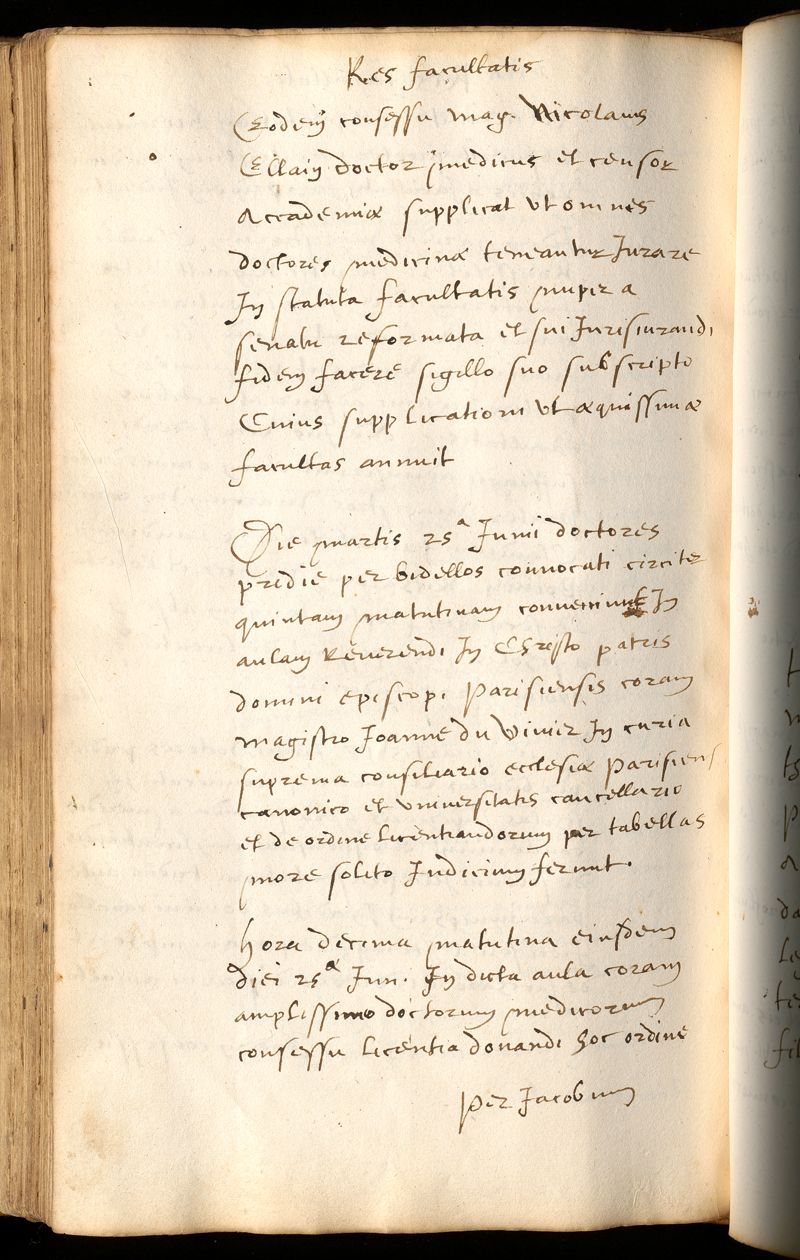 Res facultatis
Eodem consessu mag. Nicolaus
Ellain doctor medicus et censor
Accademiæ supplicat vt omnes
doctores medicinæ teneantur Jurare
In statuta facultatis nuper a
senatu reformata et sui Jurisiurandi
fidem facere sigillo suo subscripto
Cuius supplicationi vt æquissimæ
facultas annuit
Die martis 25ᵃ Junii doctores
pridie per bidellos conuocati circiter
quintam matutinam conueniunt In
aulam Reverendi In Christo patris
domini episcopi Parisiensis coram
magistro Joanne du Vivier In curia
suprema consiliario ecclesiæ Parisiens
canonico et vniuersitatis cancellario
et de ordine licentiandorum per tabellas
more solito Judicium ferunt.
hora decima matutina eiusdem
diei 25ᵃ Jun. In dicta aula coram
amplissimo doctorum medicorum
consessu licentia donandi hoc ordine
Per Jacobum